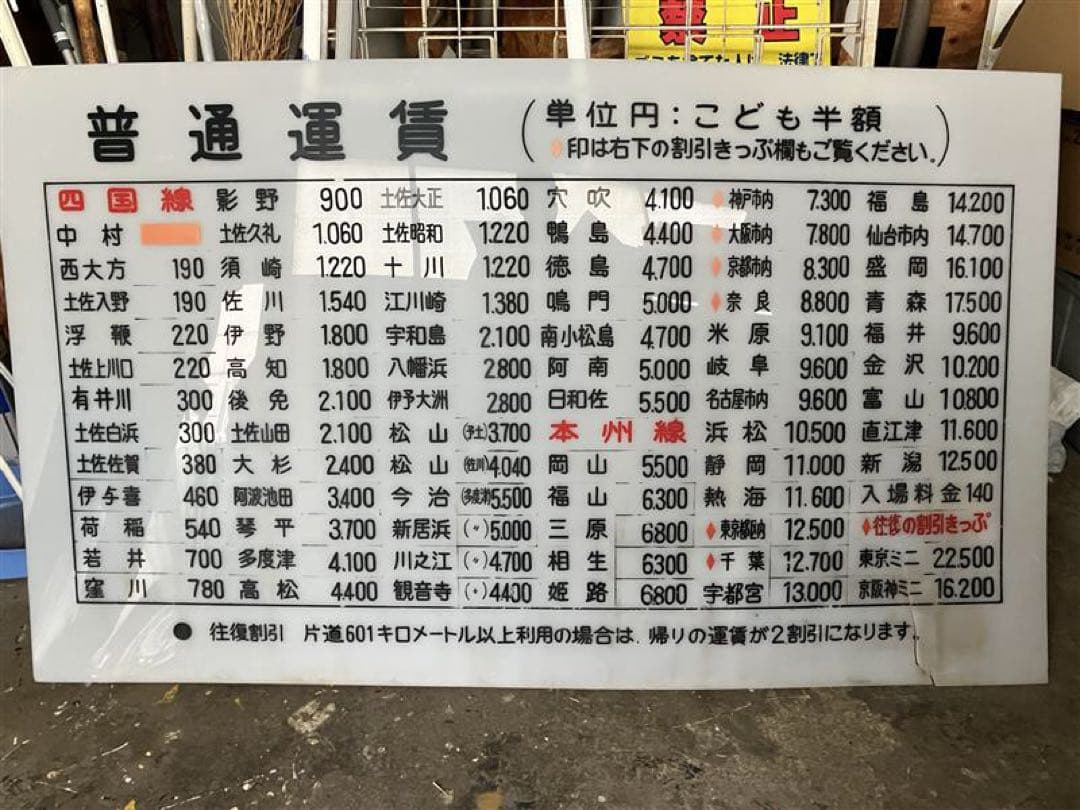 禁止
普通運賃
(単位円：こども半額
♦印は右下の割引きっぷ欄もご覧ください。)
四国線 影野 900 土佐大正 1.060 穴吹 4.100 ♦神戸市内 7.300 福島 14.200
中村 土佐久礼 1.060 土佐昭和 1.220 鴨島 4.400 ♦大阪市内 7.800 仙台市内 14.700
西大方 190 須崎 1.220 十川 1.220 徳島 4.700 ♦京都市内 8.300 盛岡 16.100
土佐入野 190 佐川 1.540 江川崎 1.380 鳴門 5.000 ♦奈良 8.800 青森 17.500
浮鞭 220 伊野 1.800 宇和島 2.100 南小松島 4.700 米原 9.100 福井 9.600
土佐上川口 220 高知 1.800 八幡浜 2.800 阿南 5.000 岐阜 9.600 金沢 10.200
有井川 300 後免 2.100 伊予大洲 2.800 日和佐 5.500 名古屋市内 9.600 富山 10.800
土佐白浜 300 土佐山田 2.100 松山 (予土)3.700 本州線 浜松 10.500 直江津 11.600
土佐佐賀 380 大杉 2.400 松山 (佐川)4.040 岡山 5500 静岡 11.000 新潟 12.500
伊与喜 460 阿波池田 3.400 今治 (多度津)5500 福山 6.300 熱海 11.600 入場料金 140
荷稲 540 琴平 3.700 新居浜 (〃)5.000 三原 6.800 ♦東京都内 12.500 ♦往復の割引きっぷ
若井 700 多度津 4.100 川之江 (〃)4.700 相生 6.300 ♦千葉 12.700 東京ミニ 22.500
窪川 780 高松 4.400 観音寺 (〃)4.400 姫路 6.800 宇都宮 13.000 京阪神ミニ 16.200
● 往復割引 片道601キロメートル以上利用の場合は、帰りの運賃が2割引になります。